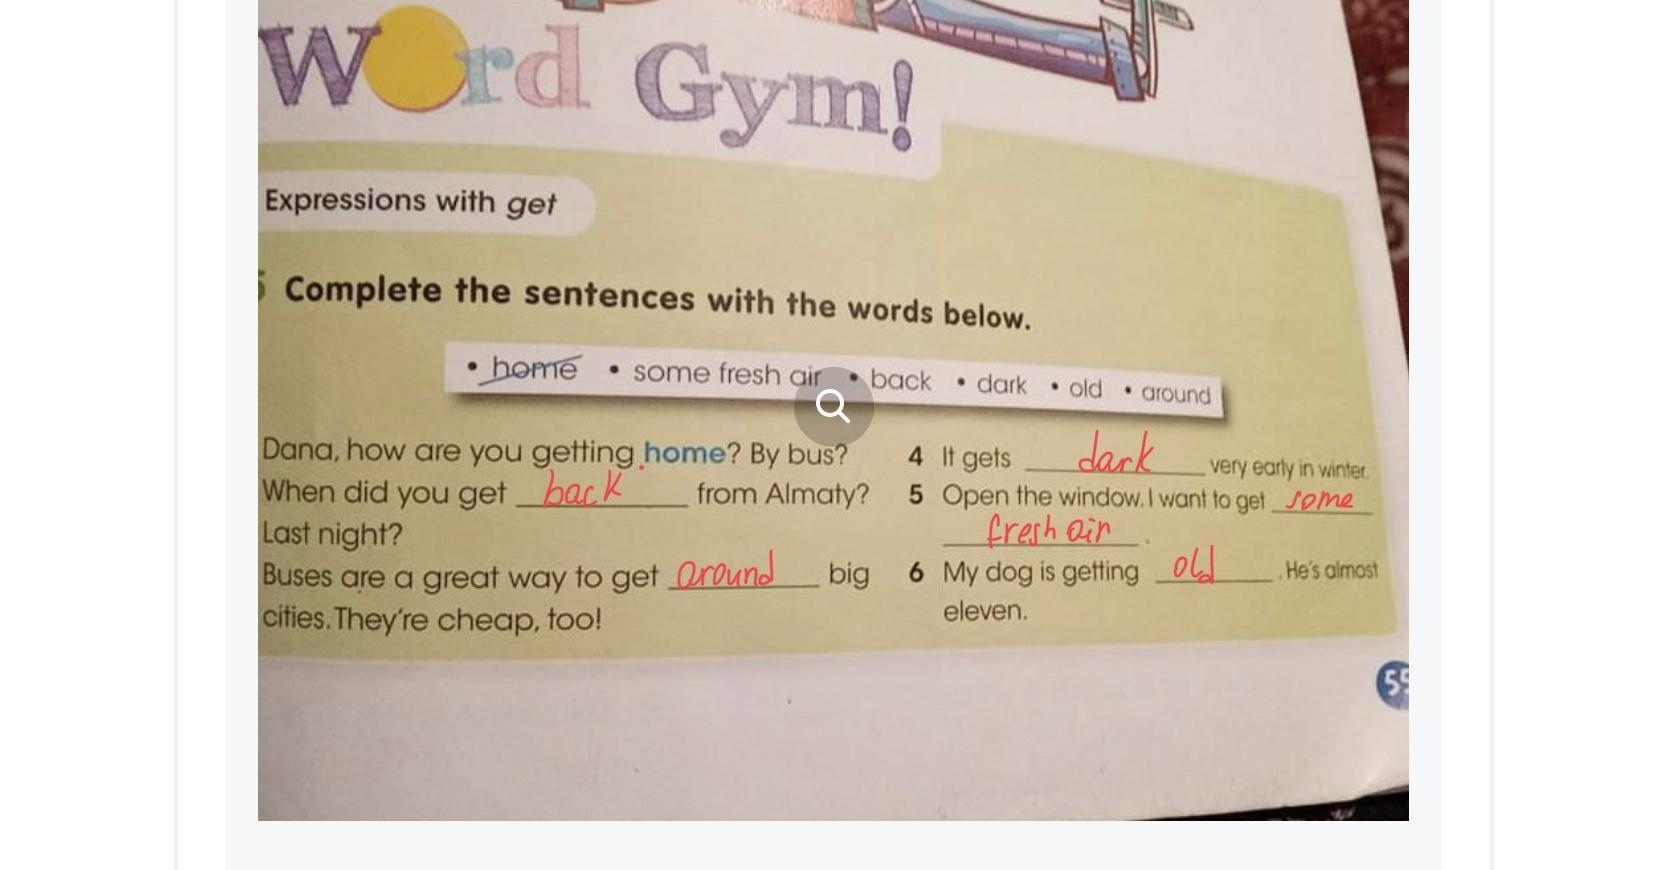 Word Gym!
Expressions with get
Complete the sentences with the words below.
• home • some fresh air • back • dark • old • around
Dana, how are you getting home? By bus?
When did you get back from Almaty?
Last night?
Buses are a great way to get around big
cities. They're cheap, too!
4 It gets dark very early in winter.
5 Open the window. I want to get some
fresh air.
6 My dog is getting old. He's almost
eleven.